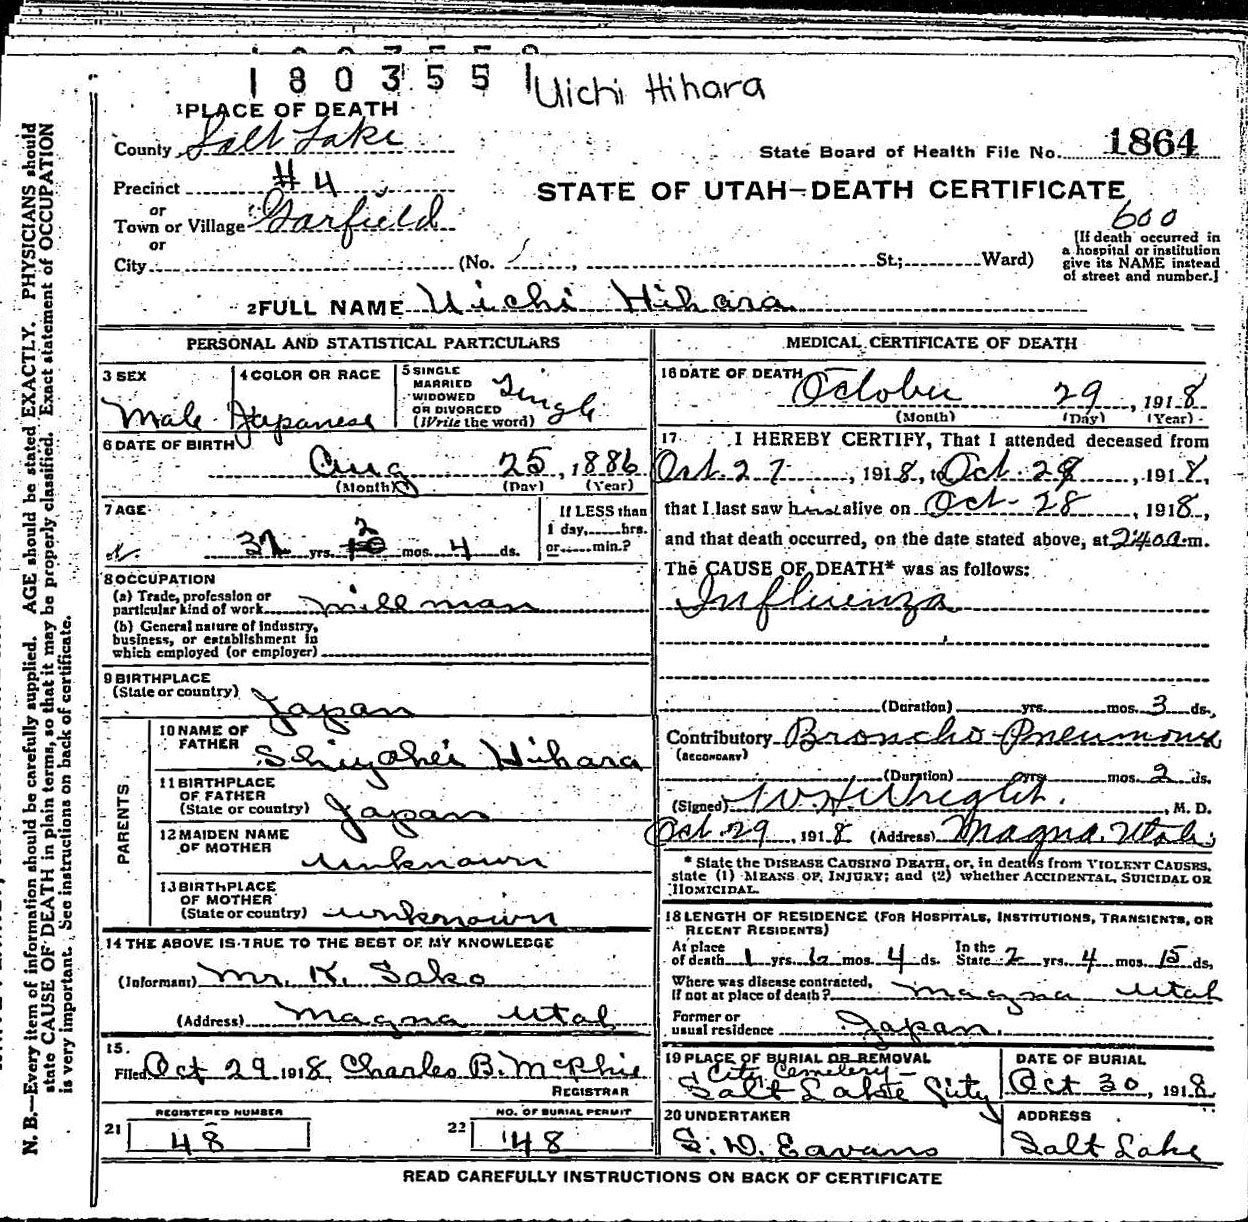 1803551
Uichi Hihara
1 PLACE OF DEATH
County Salt Lake
State Board of Health File No. 1864
Precinct #4
STATE OF UTAH—DEATH CERTIFICATE
or
Town or Village Garfield
600
or
City (No. , St.; Ward)
[If death occurred in a hospital or institution give its NAME instead of street and number.]
2 FULL NAME Uichi Hihara
PERSONAL AND STATISTICAL PARTICULARS
3 SEX Male
4 COLOR OR RACE Japanese
5 SINGLE MARRIED WIDOWED OR DIVORCED (Write the word) Single
6 DATE OF BIRTH Aug 25, 1886
(Month) (Day) (Year)
7 AGE 32 yrs. 2 mos. 4 ds.
If LESS than 1 day, hrs. or min.?
8 OCCUPATION
(a) Trade, profession or particular kind of work millman
(b) General nature of industry, business, or establishment in which employed (or employer)
9 BIRTHPLACE
(State or country) Japan
PARENTS
10 NAME OF FATHER Shiyohei Hihara
11 BIRTHPLACE OF FATHER (State or country) Japan
12 MAIDEN NAME OF MOTHER unknown
13 BIRTHPLACE OF MOTHER (State or country) unknown
14 THE ABOVE IS TRUE TO THE BEST OF MY KNOWLEDGE
(Informant) Mr. K. Sako
(Address) Magna Utah
15. Filed Oct 29 1918 Charles B. McPhie
REGISTRAR
REGISTERED NUMBER
21 48
NO. OF BURIAL PERMIT
22 48
MEDICAL CERTIFICATE OF DEATH
16 DATE OF DEATH October 29, 1918
(Month) (Day) (Year)
17 I HEREBY CERTIFY, That I attended deceased from
Oct. 27, 1918, to Oct. 28, 1918,
that I last saw him alive on Oct- 28, 1918,
and that death occurred, on the date stated above, at 2:40 a.m.
The CAUSE OF DEATH* was as follows:
Influenza
(Duration) yrs. mos. 3 ds.
Contributory Broncho-Pneumonia
(SECONDARY)
(Duration) yrs. mos. 2 ds.
(Signed) W H Wright. , M. D.
Oct. 29, 1918 (Address) Magna, Utah.
* State the DISEASE CAUSING DEATH, or, in deaths from VIOLENT CAUSES, state (1) MEANS OF INJURY; and (2) whether ACCIDENTAL, SUICIDAL OR HOMICIDAL.
18 LENGTH OF RESIDENCE (FOR HOSPITALS, INSTITUTIONS, TRANSIENTS, OR RECENT RESIDENTS)
At place of death 1 yrs. mos. 4 ds. In the State 2 yrs. 4 mos. 15 ds.
Where was disease contracted, if not at place of death? magna utah
Former or usual residence Japan.
19 PLACE OF BURIAL OR REMOVAL
City Cemetery—
Salt Lake City
DATE OF BURIAL
Oct 30, 1918
20 UNDERTAKER
S. D. Eavans
ADDRESS
Salt Lake
READ CAREFULLY INSTRUCTIONS ON BACK OF CERTIFICATE
N. B.—Every item of information should be carefully supplied. AGE should be stated EXACTLY. PHYSICIANS should
state CAUSE OF DEATH in plain terms, so that it may be properly classified. Exact statement of OCCUPATION
is very important. See instructions on back of certificate.